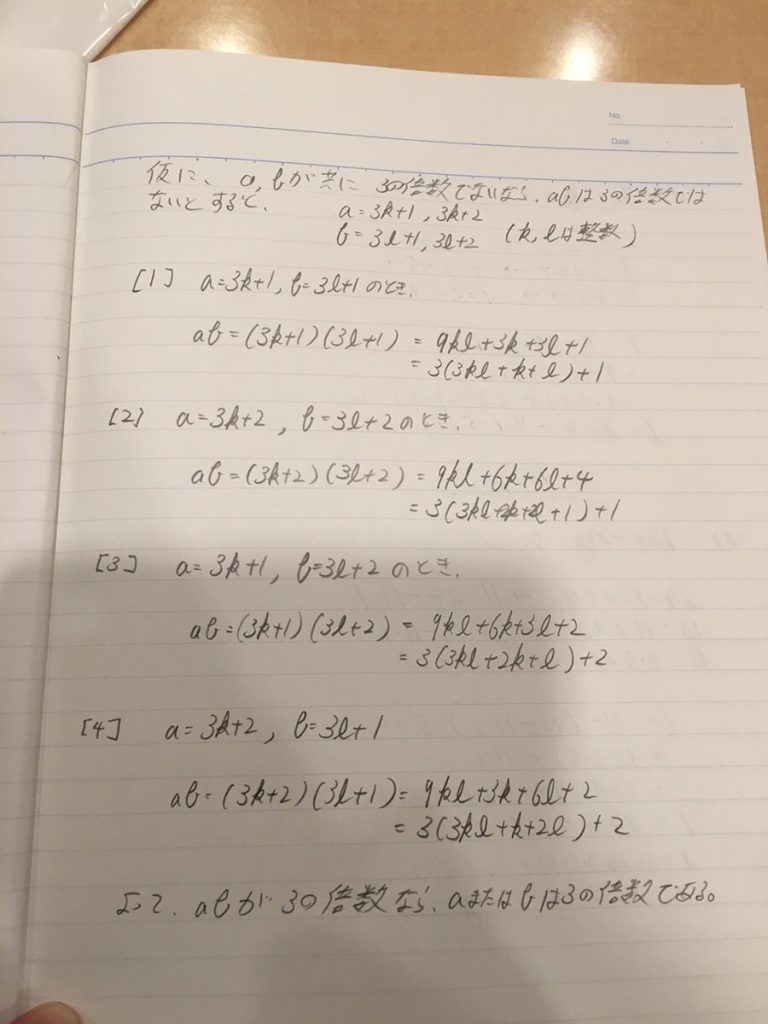 No.
Date
仮に、a,bが共に 3の倍数でないなら、abは3の倍数では
ないとすると、 a=3k+1, 3k+2
b=3l+1, 3l+2 (k,lは整数)
[1] a=3k+1, b=3l+1のとき、
ab=(3k+1)(3l+1) = 9kl+3k+3l+1
=3(3kl+k+l)+1
[2] a=3k+2, b=3l+2のとき、
ab=(3k+2)(3l+2) = 9kl+6k+6l+4
=3(3kl+2k+2l+1)+1
[3] a=3k+1, b=3l+2のとき、
ab=(3k+1)(3l+2) = 9kl+6k+3l+2
=3(3kl+2k+l)+2
[4] a=3k+2, b=3l+1
ab=(3k+2)(3l+1)=9kl+3k+6l+2
=3(3kl+k+2l)+2
よって、abが3の倍数なら、aまたはbは3の倍数である。